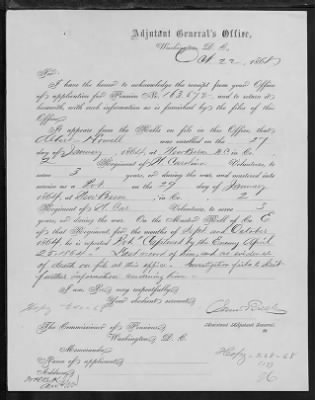 Adjutant General's Office,
Washington, D. C.
Oct 22, 1868
Sir:
I have the honor to acknowledge the receipt from your Office
of application for Pension No. 163,672, and to return it
herewith, with such information as is furnished by the files of this
Office.
It appears from the Rolls on file in this Office, that
Howell was enrolled on the 29
day of January, 1864, at New Berne N.C. in Co.
2 Regiment of N. Carolina Volunteers, to
serve 3 years, or during the war, and mustered into
service as a Pvt on the 29 day of January,
1864, at New Berne, in Co. 2
Regiment of N. Car Volunteers, to serve 3
years, or during the war. On the Muster Roll of Co. E
of that Regiment, for the months of Sept and October
1864, he is reported Pvt "Captured by the Enemy April
1864." Last record of him, and no evidence
of death on file at this office. Investigation fails to elicit
further information concerning him.
I am, Sir, very respectfully,
Your obedient servant,
Assistant Adjutant General.
The Commissioner of Pensions,
Washington, D. C.
Memoranda:
Name of applicant,
Address,